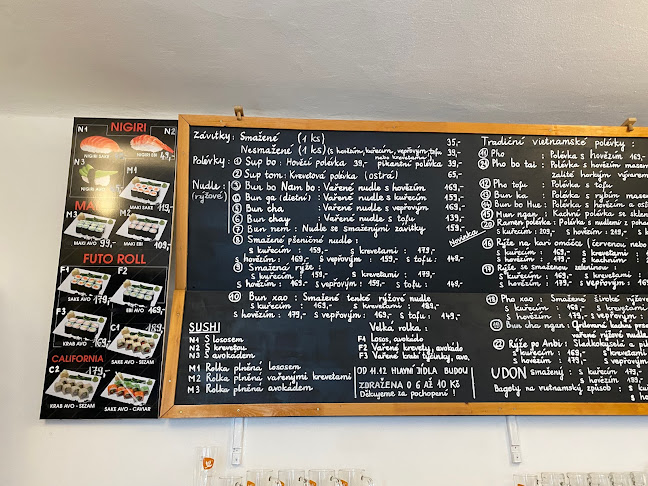 NIGIRI
N1
N2
NIGIRI SAKE
NIGIRI EBI
49,-
N3
NIGIRI AVO
M1
MAKI SAKE
119,-
M3
M2
MAKI AVO
99,-
MAKI EBI
109,-
FUTO ROLL
F1
F2
SAKE AVO
179,-
EBI AVO
169,-
F3
C1
KRAB AVO
169,-
SAKE AVO - SEZAM
CALIFORNIA
C2
179,-
KRAB AVO - SEZAM
SAKE AVO - CAVIAR
Závitky: Smažené (1 ks) 35,-
Nesmažené (1 ks) (s hovězím, kuřecím, vepřovým, tofu nebo krevetami) 39,-
Polévky: ① Sup bo: Hovězí polévka 39,- pikantní polévka 39,-
② Sup tom: Krevetová polévka (ostrá) 65,-
Nudle: ③ Bun bo Nam bo: Vařené nudle s hovězím 169,-
(rýžové) ④ Bun ga (dietní): Vařené nudle s kuřecím 159,-
⑤ Bun cha: Vařené nudle s vepřovým 159,-
⑥ Bun chay: Vařené nudle s tofu 139,-
⑦ Bun nem: Nudle se smaženými závitky 159,-
Novinka
⑧ Smažené pšeničné nudle:
s kuřecím: 159,- s krevetami: 179,-
s hovězím: 169,- s vepřovým: 159,- s tofu: 149,-
⑨ Smažená rýže:
s kuřecím: 159,- s krevetami: 179,-
s hovězím: 169,- s vepřovým: 159,- s tofu: 149,-
⑩ Bun xao: Smažené tenké rýžové nudle
s kuřecím: 169,- s krevetami: 189,-
s hovězím: 179,- s vepřovým: 169,- s tofu: 149,-
SUSHI
N1 S lososem
N2 S krevetou
N3 S avokádem
M1 Rolka plněná lososem
M2 Rolka plněná vařenými krevetami
M3 Rolka plněná avokádem
Velká rolka:
F1 Losos, avokádo
F2 Vařené krevety, avokádo
F3 Vařené krab tyčinky, avo.
OD 11.12 HLAVNÍ JÍDLA BUDOU
ZDRAŽENA O 6 AŽ 10 KČ
Děkujeme za pochopení!
Tradiční vietnamské polévky:
⑪ Pho : Polévka s hovězím 169,-
㉑ Pho bo tai: Polévka s hovězím masem
zalité horkým vývarem
⑫ Pho tofu : Polévka s tofu
⑬ Bun ka : Polévka s rybím masem
⑭ Bun bo Hue: Polévka s hovězím a ost
⑮ Mun ngan: Kachní polévka se sklen
⑳ Ramen polévka: Polévka s nudlemi z
s kuřecím: 209,- s hovězím: 219,-
⑯ Rýže na kari omáčce (červenou nebo
s kuřecím: 169,- s krevetami
s hovězím: 179,- s kachním
⑰ Rýže se smaženou zeleninou:
s kuřecím : s krevetami
s hovězím: 179,- s vepřovým
⑱ Pho xao: Smažené široké rýžov
s kuřecím: 168,- s krevetami
s hovězím: 179,- s vepřovým:
⑲ Bun cha ngan: Grilovaná kachna
vařenými rýžov
㉒ Rýže po Anbi: Sladkokyselá a pik
s kuřecím : 169,- s krevetami
s hovězím: 179,- s vepřovým:
UDON Smažený: s kuřecím : 1
s hovězím: 189,-
Bagety na vietnamský způsob: s kuř
s hov